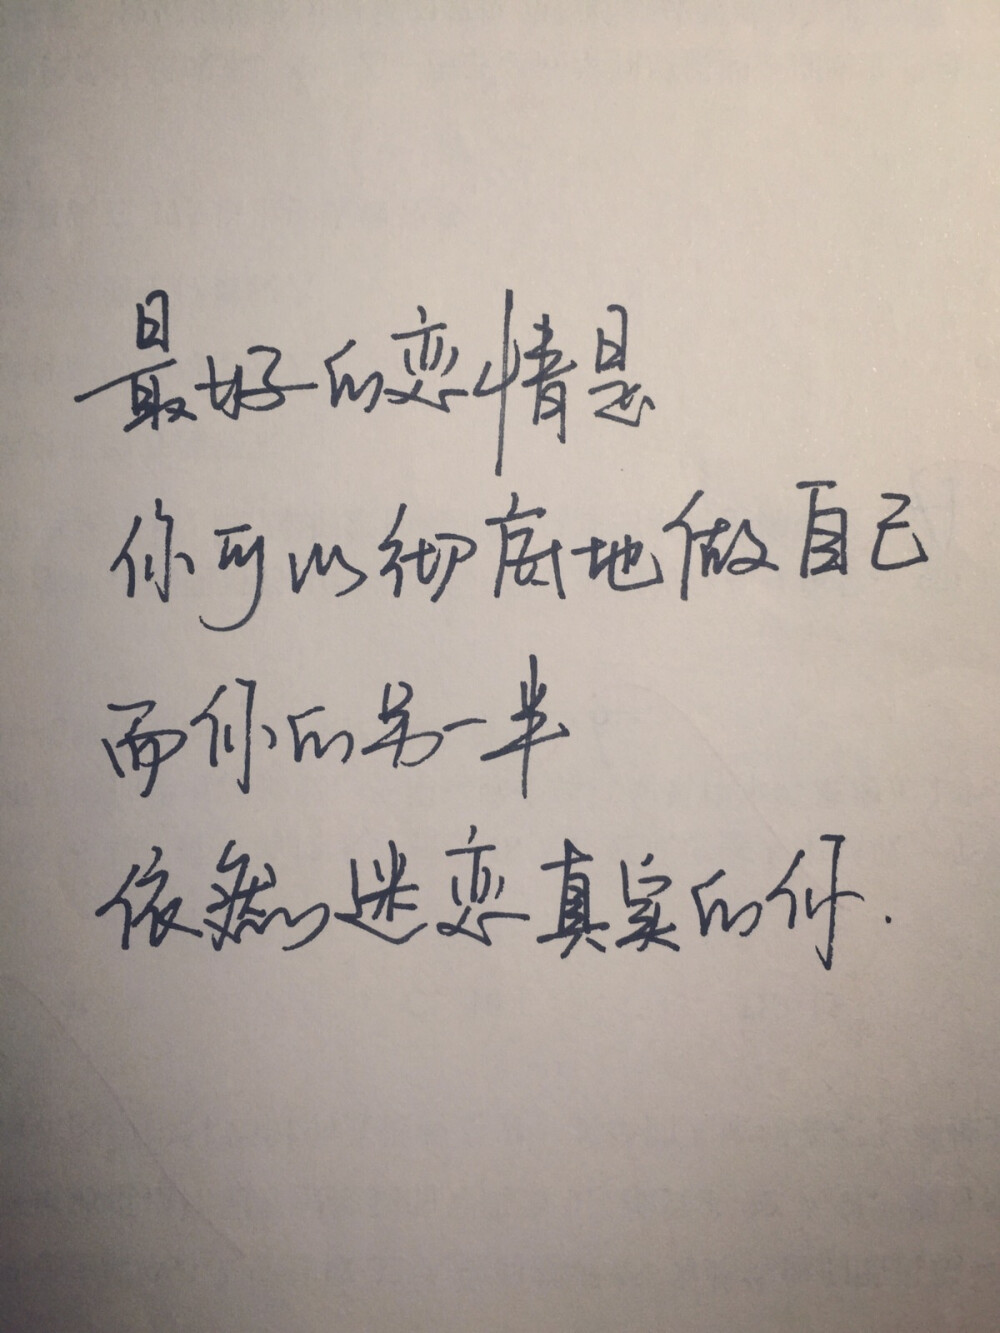 最好的恋情是
你可以彻底地做自己
而你的另一半
依然迷恋真实的你.